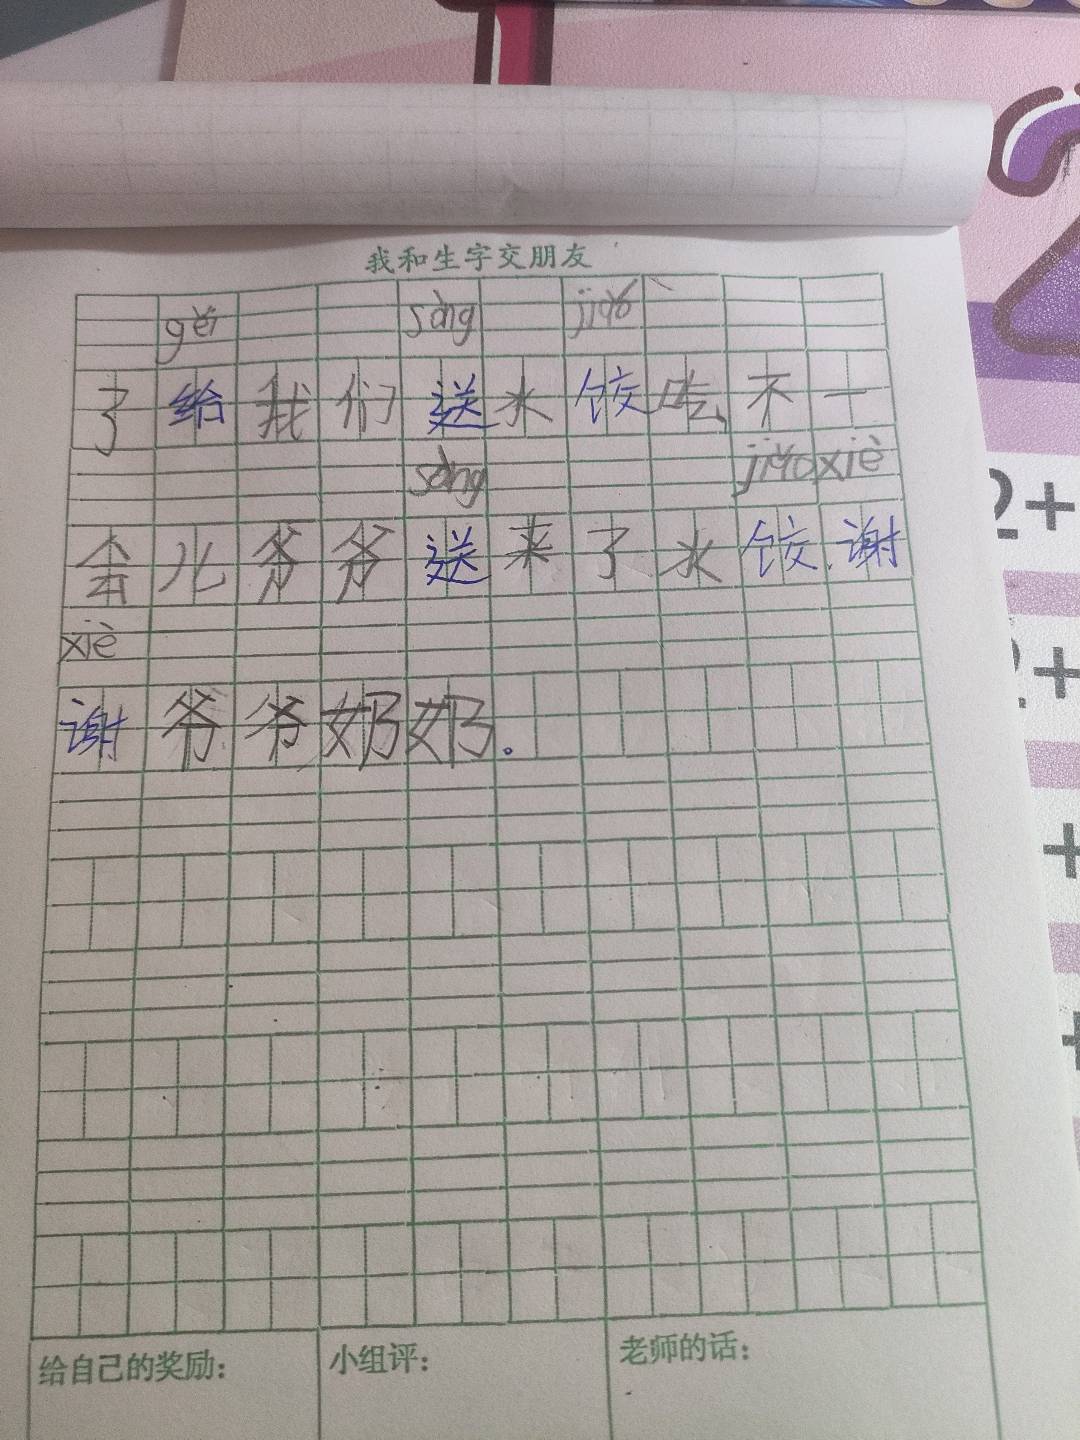 我和生字交朋友
gěi sòng jiǎo
了给我们送水饺吃不一
sòng jiǎo xiè
会儿爷爷送来了水饺.谢
xiè
谢爷爷奶奶。
给自己的奖励：
小组评：
老师的话：
2+
2+
+
+